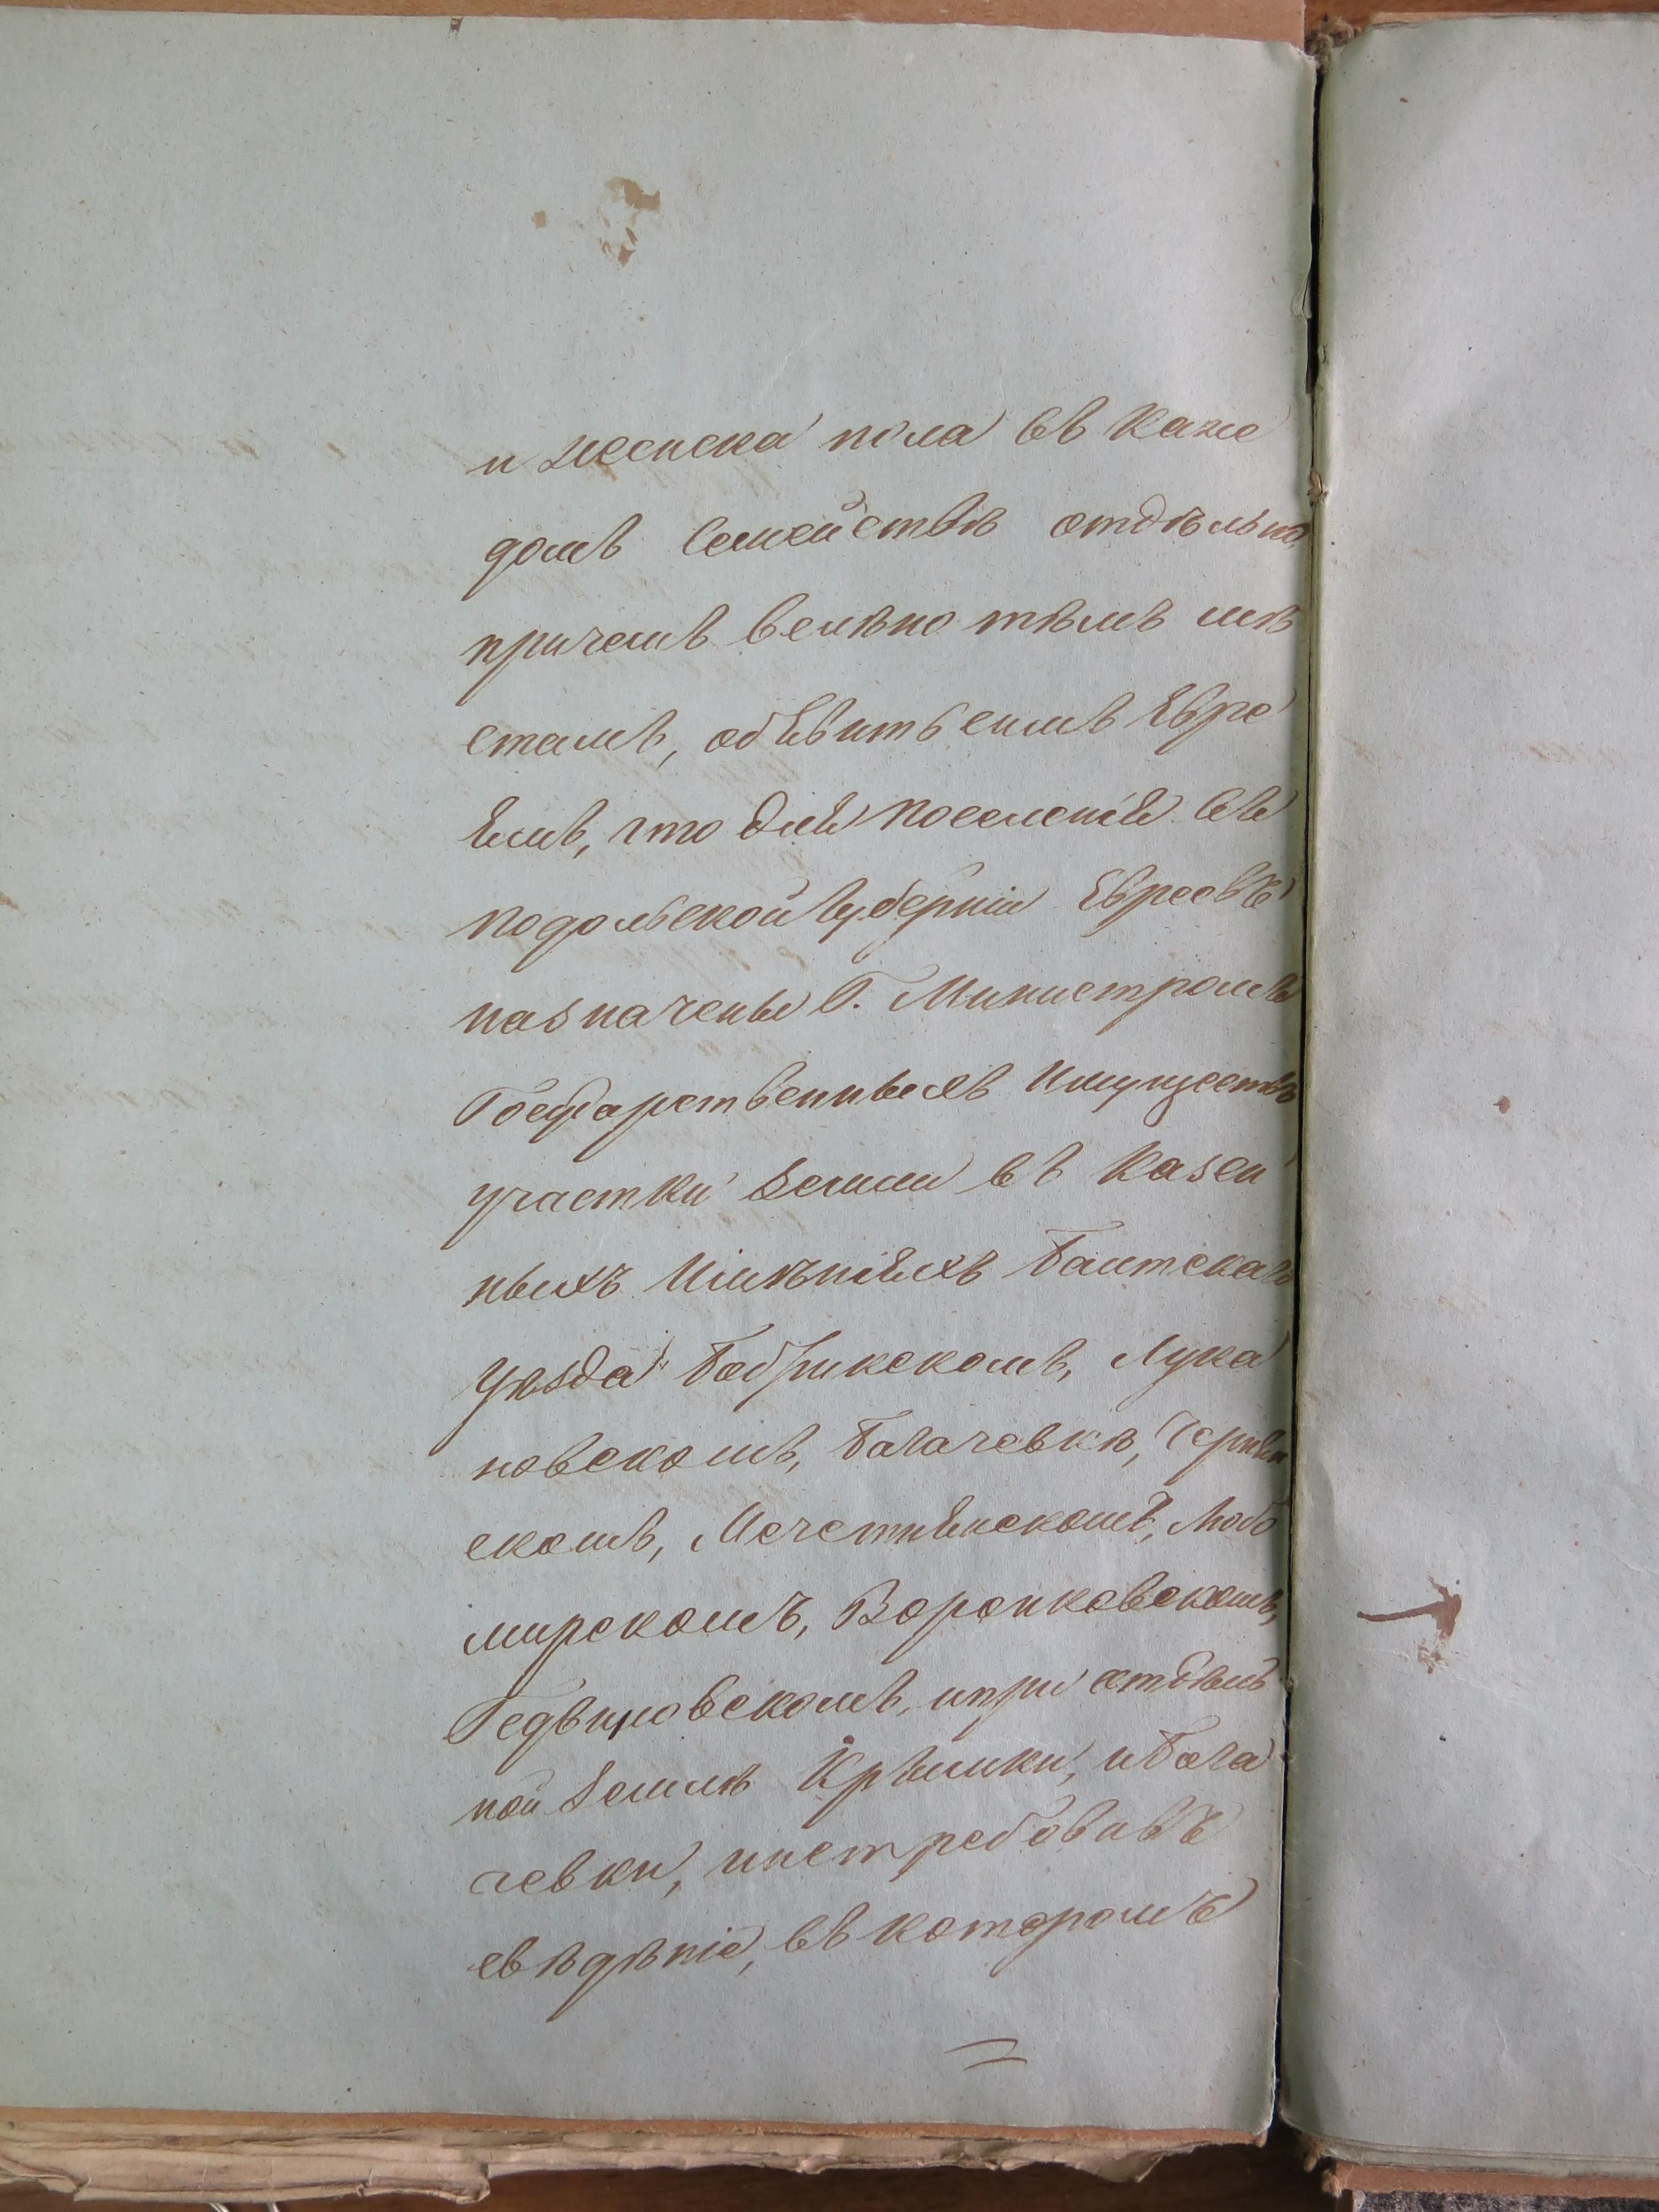 и женска пола въ каж
домъ семействѣ отдѣльно,
причемъ велѣно тѣмъ мѣ
стамъ, объявить симъ Евре
ямъ, что для поселенія въ
подольской Губерніи Евреовъ
назначены Г. Министромъ
Государственныхъ Имуществъ
участки земли въ казен
ныхъ Имѣніяхъ Балтскаго
уѣзда Бобрикскомъ, Лука
новскомъ, Багачевкѣ, Чернян
скомъ, Мечетнянскомъ, Любо
мирскомъ, Воронковскомъ,
Гедвиновскомъ, и при отдѣль
ной землѣ Крымки, и Бага
чевки, и истребовавъ
свѣдѣніе, въ которомъ